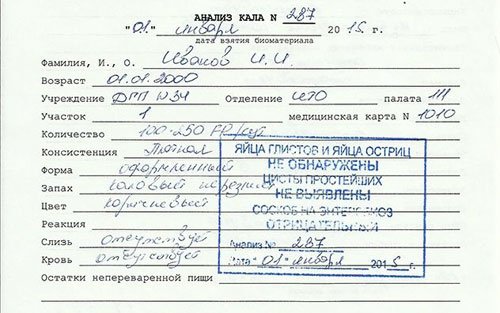 АНАЛИЗ КАЛА N 287
"01" января 2015 г.
дата взятия биоматериала
Фамилия, И., О. Иванов И.И.
Возраст 01.01.2000
Учреждение ДГП №34 Отделение палата 111
Участок 1 медицинская карта N 1010
Количество 100-250
Консистенция
Форма оформленный
Запах каловый
Цвет коричневый
Реакция
Слизь отсутствует
Кровь отсутствует
Остатки непереваренной пищи
ЯЙЦА ГЛИСТОВ И ЯЙЦА ОСТРИЦ
НЕ ОБНАРУЖЕНЫ
ЦИСТЫ ПРОСТЕЙШИХ
НЕ ВЫЯВЛЕНЫ
СОСКОБ НА ЭНТЕРОБИОЗ
ОТРИЦАТЕЛЬНЫЙ
Анализ № 287
Дата "01" января 2015 г.